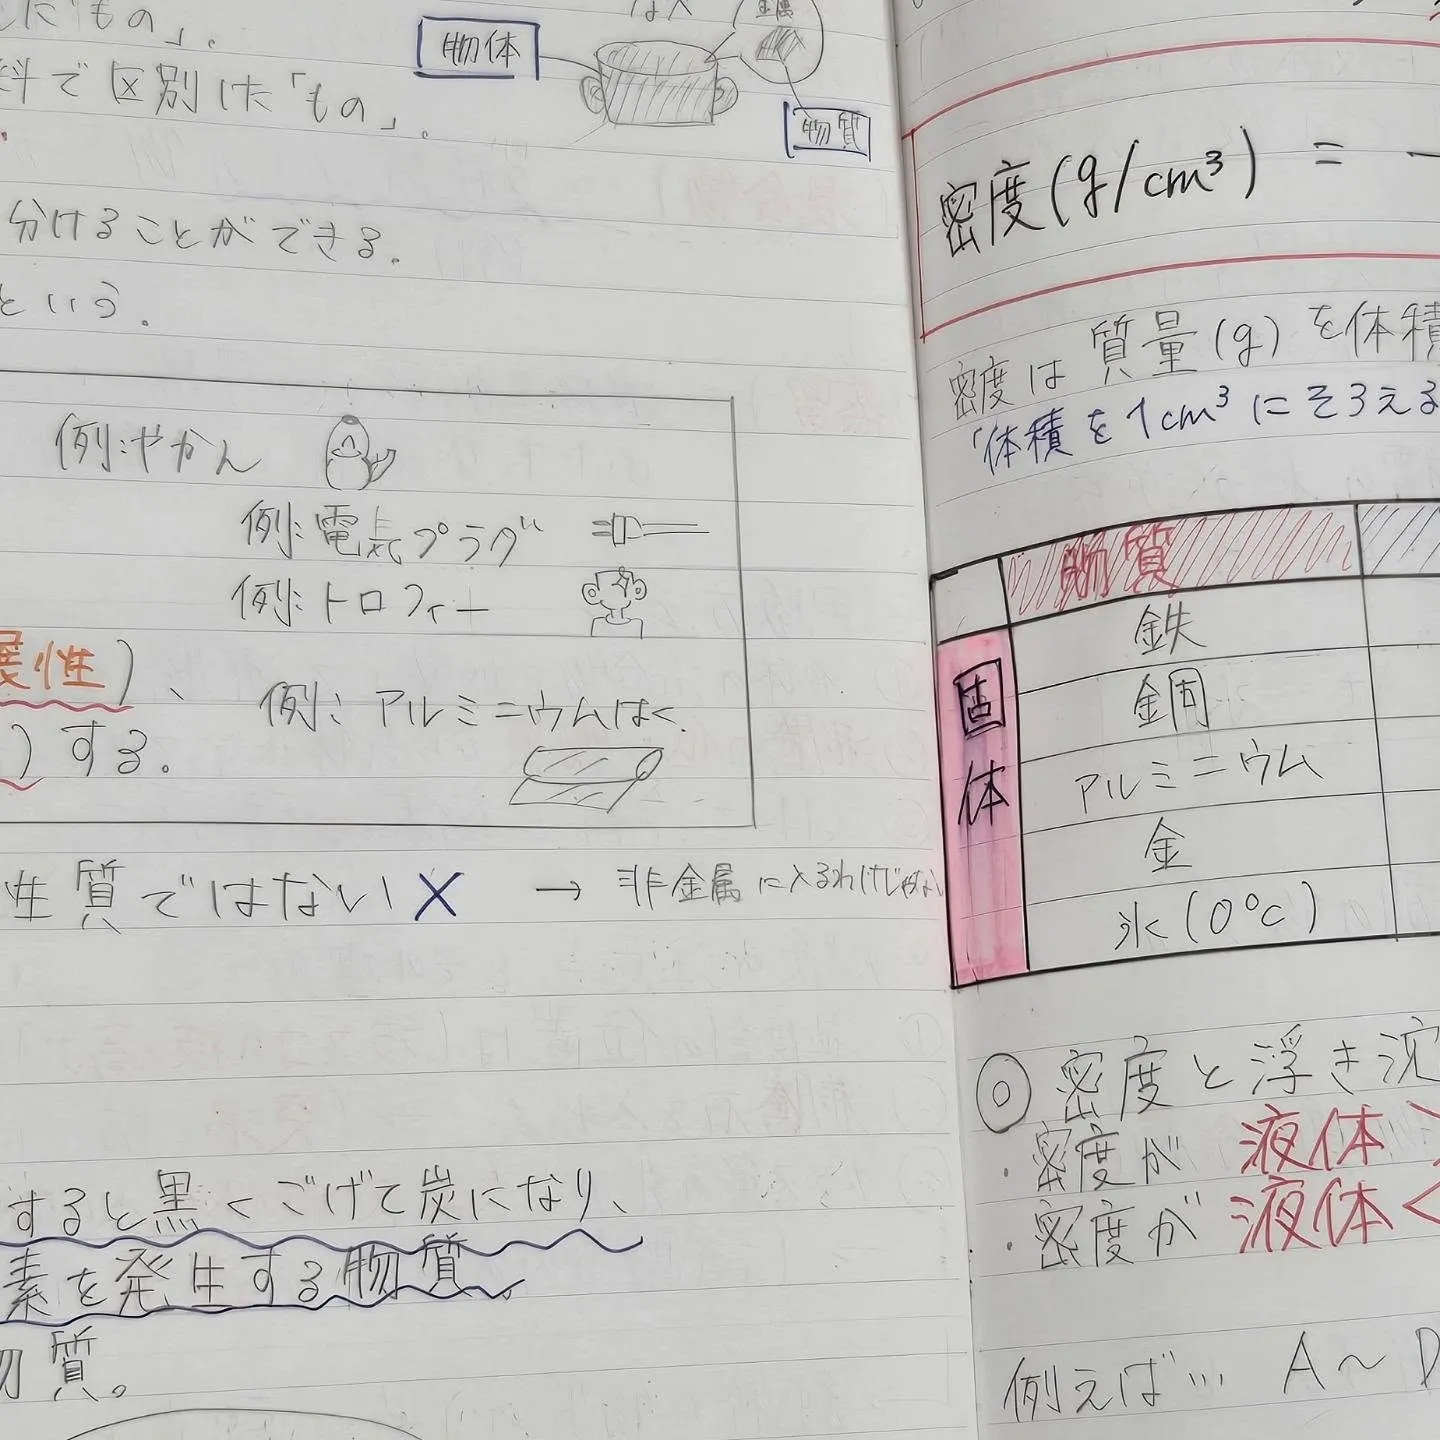 した「もの」.
料で区別した「もの」.
物体
金属
物質
分けることができる.
という.
例:やかん
例:電気プラグ
例:トロフィー
展性)、
例:アルミニウムはく
)する.
性質ではない X → 非金属に入るわけじゃない
すると黒くこげて炭になり、
素を発生する物質.
物質。
密度(g/cm³) =
密度は質量(g)を体積
「体積を1cm³にそろえる
物質
固体
鉄
銅
アルミニウム
金
氷(0℃)
◎密度と浮き沈
・密度が 液体>
・密度が 液体<
例えば… A~D